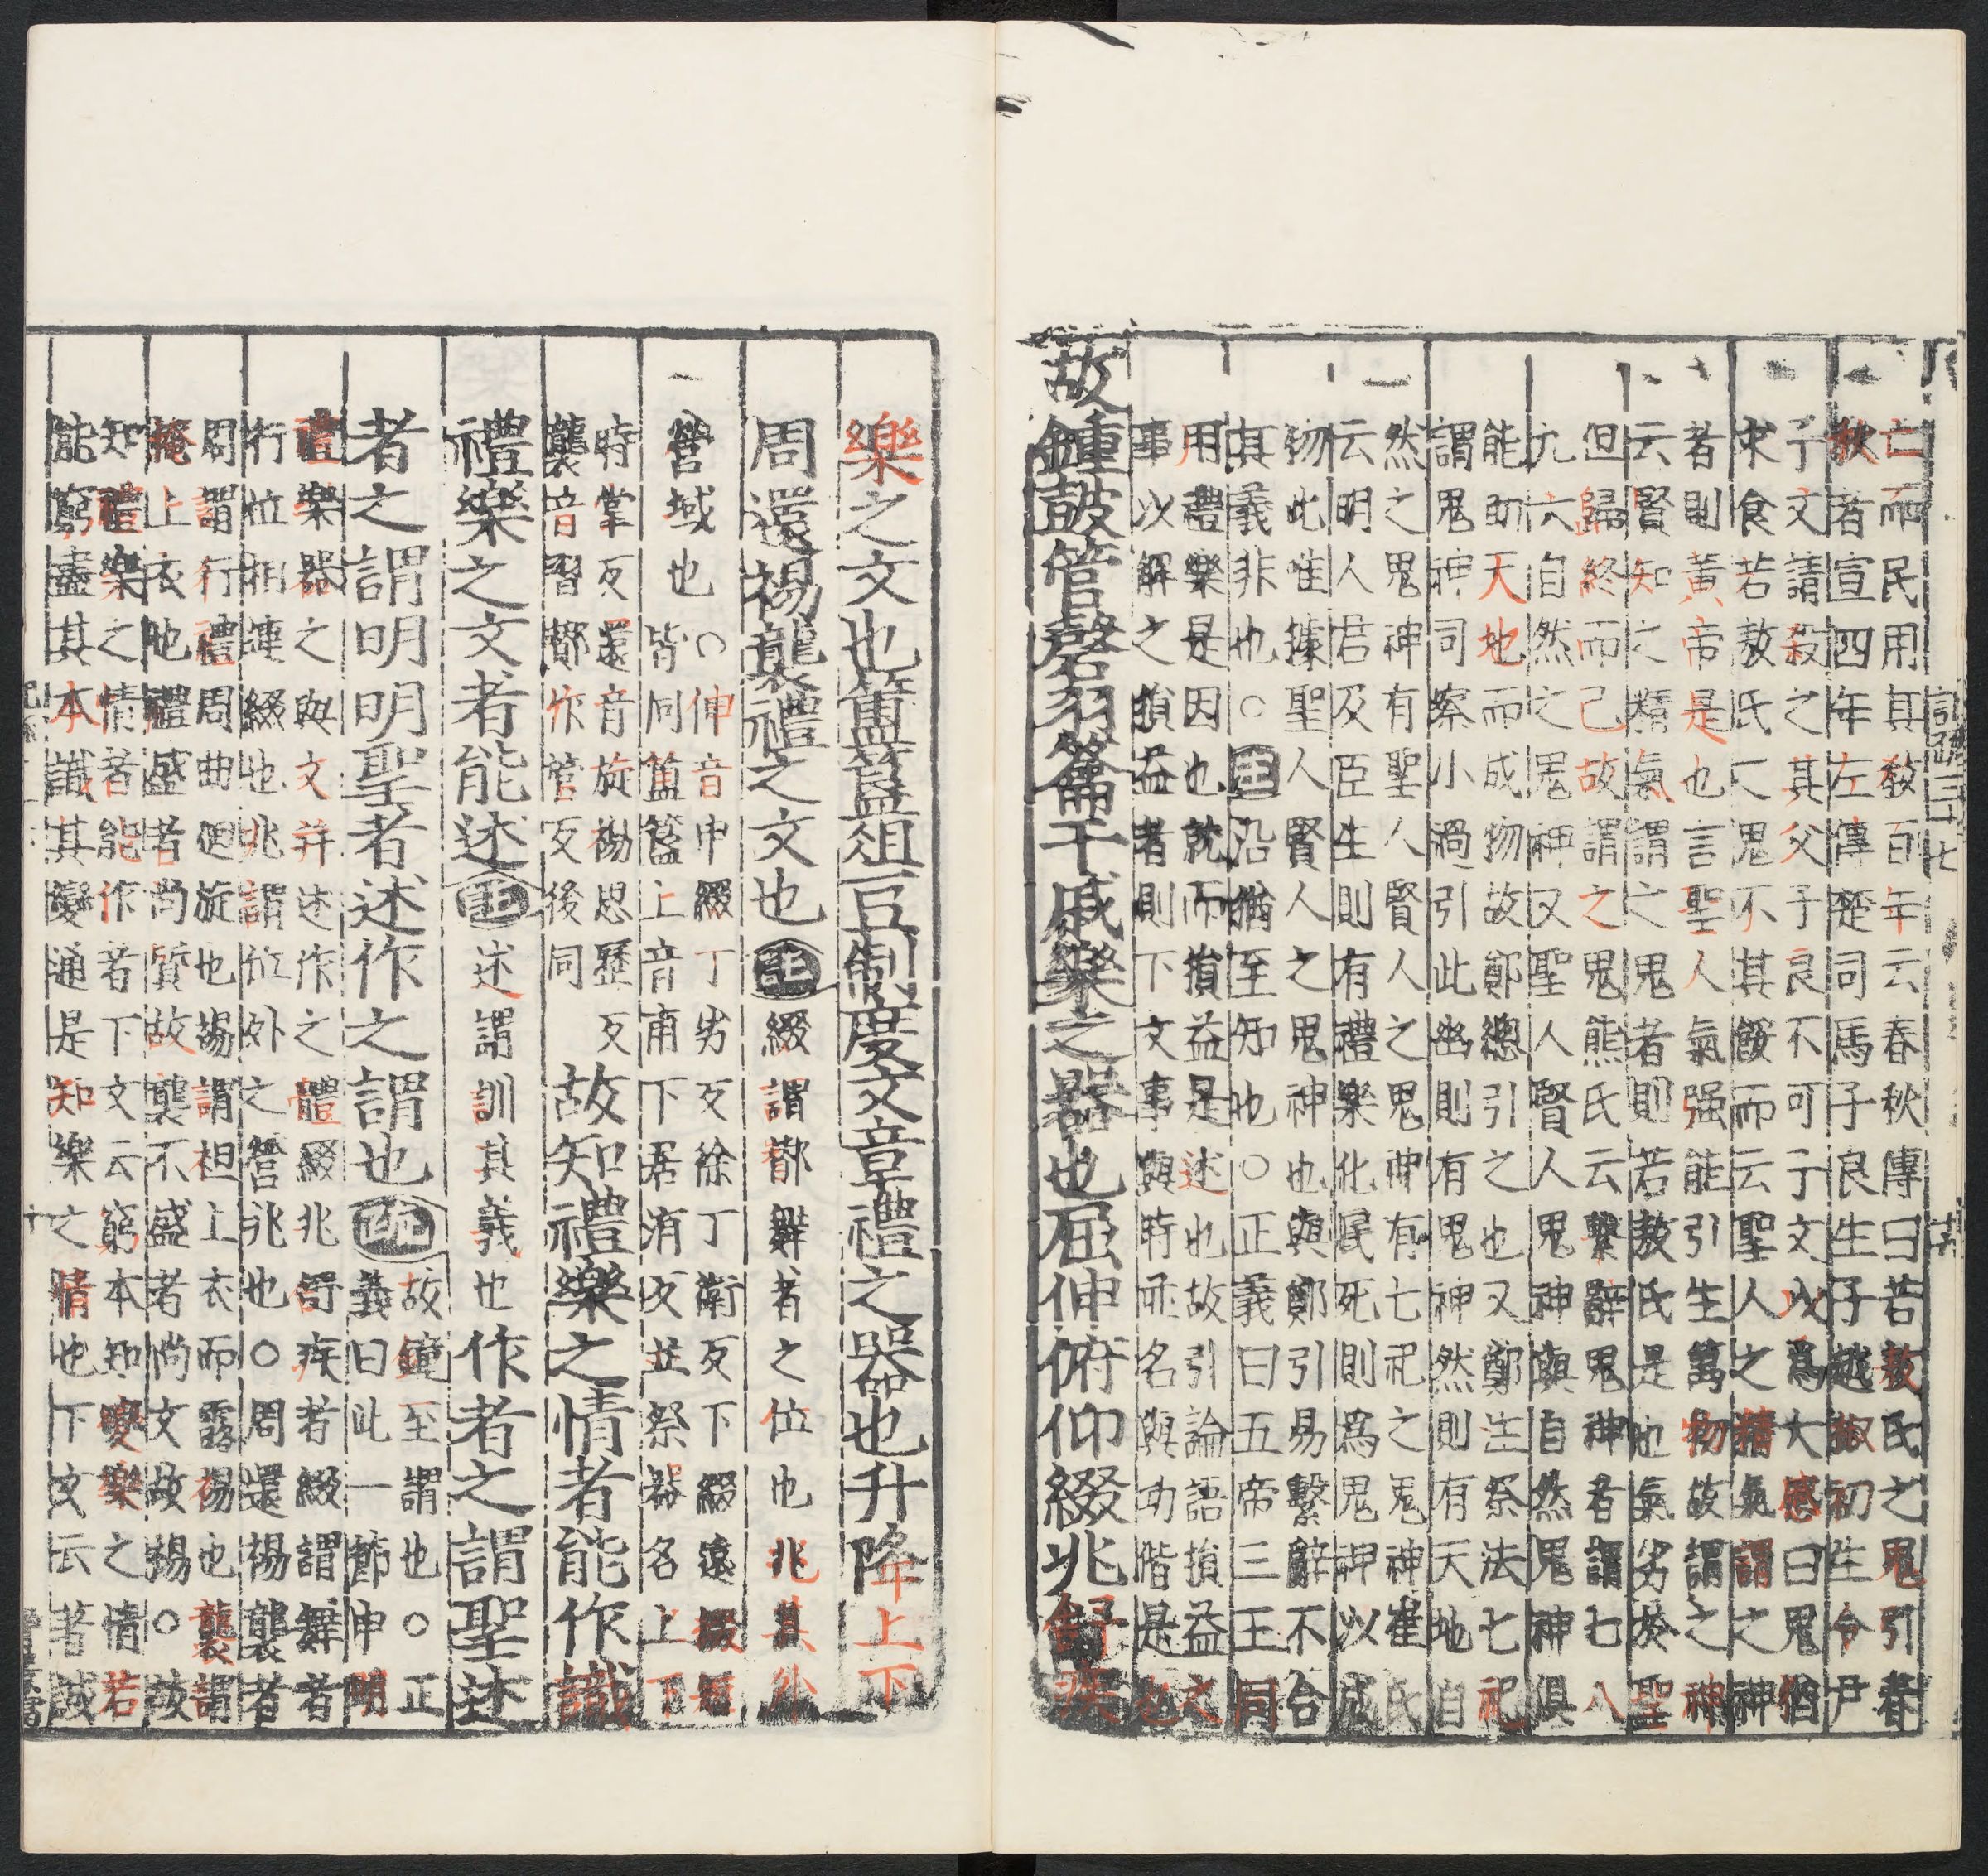 亡而民用其敎百年云春秋傳曰若敖氏之鬼引春
秋者宣四年左傳楚司馬子良生子越椒初生令尹
子文請殺之其父子良不可子文以爲大慼曰鬼猶
求食若敖氏之鬼不其餒而云聖人之精氣謂之神
者則黃帝是也言聖人氣强能引生萬物故謂之神
云賢知之精氣謂之鬼者則若敖氏是也氣劣於聖
但歸終而已故謂之鬼熊氏云繫辭鬼神者謂七八
九六自然之鬼神又聖人賢人鬼神與自然鬼神俱
能助天地而成物故鄭總引之也又鄭注祭法七祀
謂鬼神司察小過引此幽則有鬼神然則有天地自
然之鬼神有聖人賢人之鬼神有七祀之鬼神崔氏
云明人君及臣生則有禮樂化民死則爲鬼神以成
物此唯據聖人賢人之鬼神也與鄭引易繫辭不合
其義非也○注沿猶至知也○正義曰五帝三王同
用禮樂是因也就而損益是述也故引論語損益之
事以解之損益者則下文事與時並名與功偕是也
故鍾鼓管磬羽籥干戚樂之器也屈伸俯仰綴兆舒疾
樂之文也簠簋俎豆制度文章禮之器也升降上下
周還裼襲禮之文也注綴謂酇舞者之位也兆其外
營域也○伸音申綴丁劣反徐丁衛反下綴遠綴短
皆同簠簋上音甫下居洧反並祭器名上
時掌反還音旋裼思歷反
襲音習酇作管反後同
故知禮樂之情者能作識
禮樂之文者能述注述謂訓其義也作者之謂聖述
者之謂明明聖者述作之謂也疏故鍾至謂也○正
義曰此一節申明
禮樂器之與文并述作之體綴兆舒疾者綴謂舞者
行位相連綴也兆謂位外之營兆也○周還裼襲者
周謂行禮周曲迴旋也裼謂袒上衣而露裼也襲謂
掩上衣也禮盛者尚質故襲不盛者尚文故裼○故
知禮樂之情者能作者下文云窮本知變樂之情若
能窮盡其本識其變通是知樂之情也下文云著誠